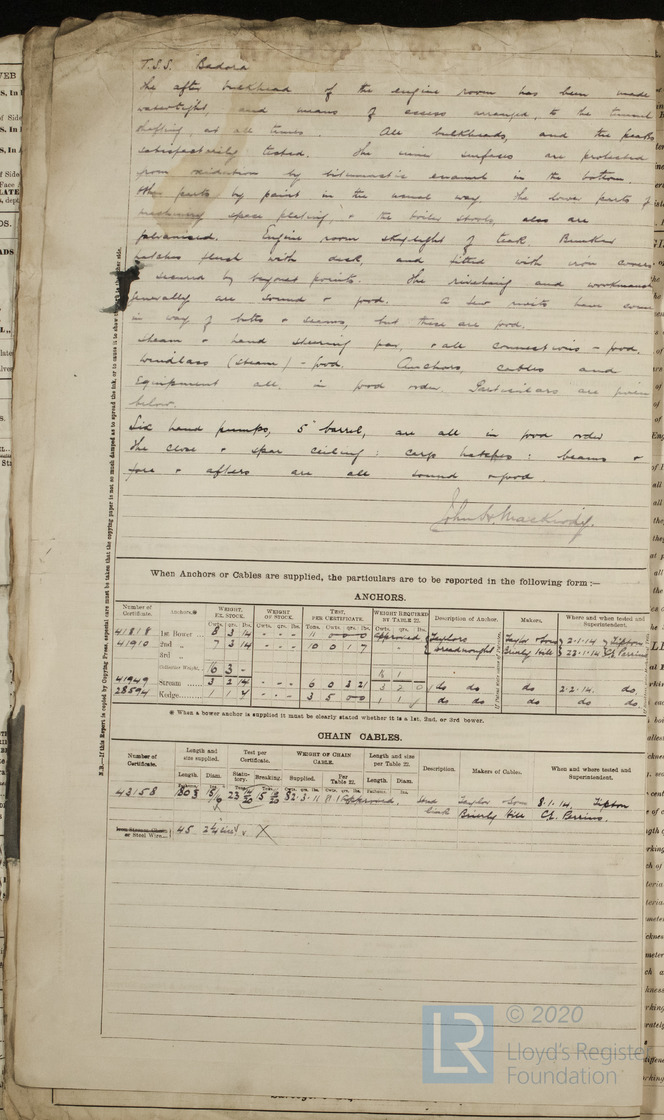 T.S.S. "Badora
The after bulkhead of the engine room has been made
watertight, and means of access arranged, to the tunnel
shafting, at all times. All bulkheads, and the peaks
satisfactorily tested. The inner surfaces are protected
from oxidation by bitumastic enamel in the bottom
other parts by paint in the usual way. The lower parts of
machinery space plating, + the boiler stools, also are
galvanised. Engine room skylight of teak. Bunker
hatches flush with deck, and fitted with iron covers
secured by bayonet points. The rivetting and workmanship
generally are sound + good. A few rivets have
in way of butts + seams, but these are good.
Steam + hand steering gear, + all connections - good.
Windlass (steam) - good. Anchors, cables and
Equipment all in good order. Particulars are given
below.
Six hand pumps, 5" barrel, are all in good order
The close + spar ceiling: cargo hatches: beams +
fore + afters are all sound + good.
N.B.—If this Report is copied by Copying Press, especial care must be taken that the copying paper is not so much damped as to spread the ink, or to cause it to show the other side.
When Anchors or Cables are supplied, the particulars are to be reported in the following form:—
ANCHORS.
Number of Certificate. Anchors.* WEIGHT, EX. STOCK. WEIGHT OF STOCK. TEST, PER CERTIFICATE. WEIGHT REQUIRED BY TABLE 22. Description of Anchor. Makers. Where and when tested and Superintendent.
Cwts. qrs. lbs. Cwts. qrs. lbs. Tons. Cwts. qrs. lbs. Cwts. qrs. lbs.
41818 1st Bower 8 3 14 - - - 11 0 0 0 Approved Taylors Taylor & Sons 2.1.14 Tipton
41910 2nd " 7 3 14 - - - 10 0 1 7 Dreadnought Brierly Hill 22.1.14 C.L. Perrins
3rd "
Collective Weight. 16 3 -
41949 Stream 3 2 14 - - - 6 0 3 21 3 2 0 do do do 2.2.14. do.
28594 Kedge 1 1 - - - 3 5 0 0 1 1 do do do do do
* When a bower anchor is supplied it must be clearly stated whether it is a 1st, 2nd, or 3rd bower.
CHAIN CABLES.
Number of Certificate. Length and size supplied. Test per Certificate. WEIGHT OF CHAIN CABLE. Length and size per Table 22. Description. Makers of Cables. When and where tested and Superintendent.
Length. Diam. Statutory. Breaking. Supplied. Per Table 22. Length. Diam.
43158 Approved. Stud Taylor & Sons 8.1.14, Tipton
link Brierly Hill C.L. Perrins.
Iron Stream Chain or Steel Wire 45
LR
© 2020
Lloyd's Register
Foundation